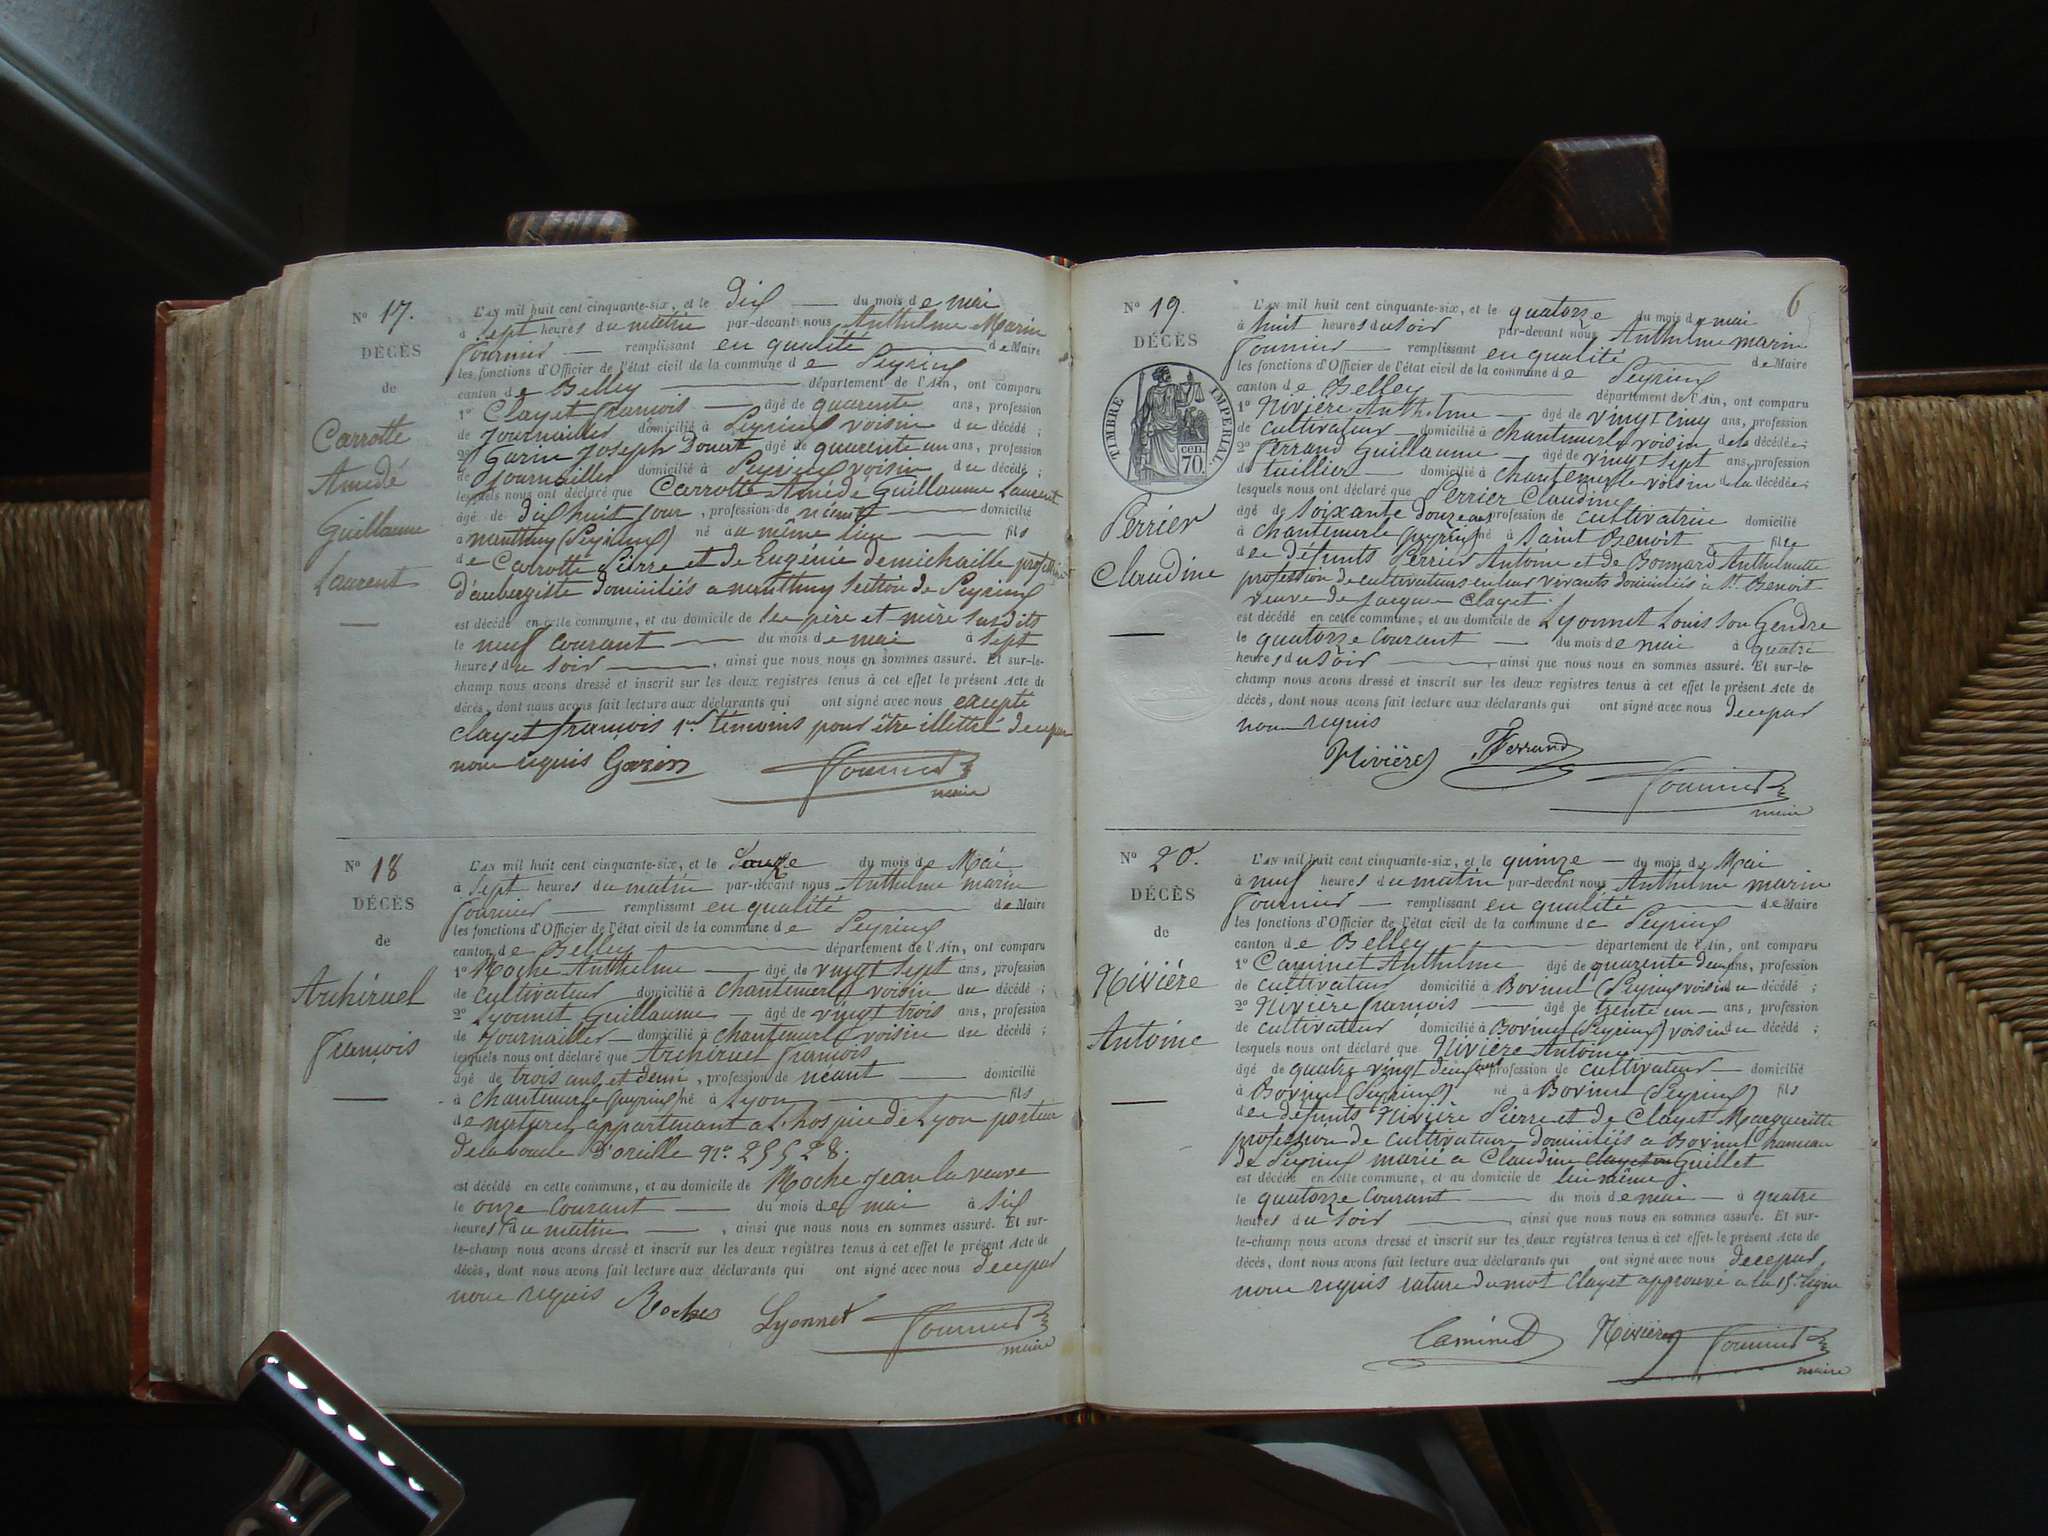 N° 17.
DÉCÈS
de
Carrotte
Amédé
Guillaume
Laurent
L'AN mil huit cent cinquante-six, et le dix du mois de mai
à sept heures du matin par-devant nous Anthelme Marin
Fournier remplissant en qualité de Maire
les fonctions d'Officier de l'état civil de la commune de Peyrieux
canton de Belley département de l'Ain, ont comparu
1° Clayet françois âgé de quarente ans, profession
de Journailler domicilié à Peyrieux voisin du décédé ;
2° Garin Joseph Donat âgé de quarente un ans, profession
de Journailler domicilié à Peyrieux voisin du décédé ;
lesquels nous ont déclaré que Carrotte Amédé Guillaume Laurent
âgé de dix huit jour, profession de domicilié
à nanthuy (Peyrieux) né au même lieu fils
de Carrotte Pierre et de Eugénie demichaille profession
d'aubergiste domiciliés a nanthuy section de Peyrieux
est décédé en cette commune, et au domicile de ses père et mère susdits
le neuf courant du mois de mai à sept
heures du soir, ainsi que nous nous en sommes assuré. Et sur-le-
champ nous avons dressé et inscrit sur les deux registres tenus à cet effet le présent Acte de
décès, dont nous avons fait lecture aux déclarants qui ont signé avec nous excepté
clayet françois 1er témoins pour être illettré de ce par
nous requis Garin Fournier
maire
N° 18
DÉCÈS
de
Archiruel
françois
L'AN mil huit cent cinquante-six, et le douze du mois de Mai
à sept heures du matin par-devant nous Anthelme marin
Fournier remplissant en qualité de Maire
les fonctions d'Officier de l'état civil de la commune de Peyrieux
canton de Belley département de l'Ain, ont comparu
1° Roche Anthelme âgé de vingt sept ans, profession
de cultivateur domicilié à chantemerle voisin du décédé ;
2° Lyonnet Guillaume âgé de vingt trois ans, profession
de Journailler domicilié à chantemerle voisin du décédé ;
lesquels nous ont déclaré que Archiruel françois
âgé de trois ans et demi, profession de néant domicilié
à chantemerle (peyrieux) né à Lyon fils
de naturel appartenant a L'hospice de Lyon porteur
de la boucle d'oreille n°. 25528.
est décédé en cette commune, et au domicile de Roche Jean la veuve
le onze courant du mois de mai à six
heures du matin, ainsi que nous nous en sommes assuré. Et sur-
le-champ nous avons dressé et inscrit sur les deux registres tenus à cet effet le présent Acte de
décès, dont nous avons fait lecture aux déclarants qui ont signé avec nous de ce par
nous requis Roches Lyonnet Fournier
maire
6
N° 19.
DÉCÈS
TIMBRE IMPERIAL
70 cen.
Perrier
Claudine
L'AN mil huit cent cinquante-six, et le quatorze du mois de mai
à huit heures du soir par-devant nous Anthelme marin
Fournier remplissant en qualité de Maire
les fonctions d'Officier de l'état civil de la commune de Peyrieux
canton de Belley département de l'Ain, ont comparu
1° Nivière Anthelme âgé de vingt cinq ans, profession
de cultivateur domicilié à chantemerle voisin de la décédée ;
2° Ferrand Guillaume âgé de vingt sept ans, profession
de tuillier domicilié à chantemerle voisin de la décédée ;
lesquels nous ont déclaré que Perrier Claudine
âgé de soixante douze ans profession de cultivatrice domicilié
à chantemerle (peyrieux) né à Saint Benoit fille
de défunts Perrier Antoine et de Bonnard Anthelmette
profession de cultivateurs en leur vivants domiciliés à St. Benoit
veuve de Jacques Clayet.
est décédé en cette commune, et au domicile de Lyonnet Louis son Gendre
le quatorze courant du mois de mai à quatre
heures du soir, ainsi que nous nous en sommes assuré. Et sur-le-
champ nous avons dressé et inscrit sur les deux registres tenus à cet effet le présent Acte de
décès, dont nous avons fait lecture aux déclarants qui ont signé avec nous de ce par
nous requis
Nivière Ferrand Fournier
maire
N° 20.
DÉCÈS
de
Nivière
Antoine
L'AN mil huit cent cinquante-six, et le quinze du mois de Mai
à neuf heures du matin par-devant nous Anthelme marin
Fournier remplissant en qualité de Maire
les fonctions d'Officier de l'état civil de la commune de Peyrieux
canton de Belley département de l'Ain, ont comparu
1° Caminet Anthelme âgé de quarente deux ans, profession
de cultivateur domicilié à Bovinel (Peyrieux) voisin du décédé ;
2° Nivière françois âgé de trente un ans, profession
de cultivateur domicilié à Bovinel (Peyrieux) voisin du décédé ;
lesquels nous ont déclaré que Nivière Antoine
âgé de quatre vingt deux ans profession de cultivateur domicilié
à Bovinel (Peyrieux) né à Bovinel (Peyrieux) fils
de défunts Nivière Pierre et de Clayet Margueritte
profession de cultivateurs domiciliés a Bovinel hameau
de Peyrieux marié a Claudine Clayet Guillet
est décédé en cette commune, et au domicile de lui même
le quatorze courant du mois de mai à quatre
heures du soir, ainsi que nous nous en sommes assuré. Et sur-
le-champ nous avons dressé et inscrit sur les deux registres tenus à cet effet le présent Acte de
décès, dont nous avons fait lecture aux déclarants qui ont signé avec nous de ce par
nous requis rature du mot Clayet approuvé a la 15e ligne
Caminet Nivière Fournier
maire